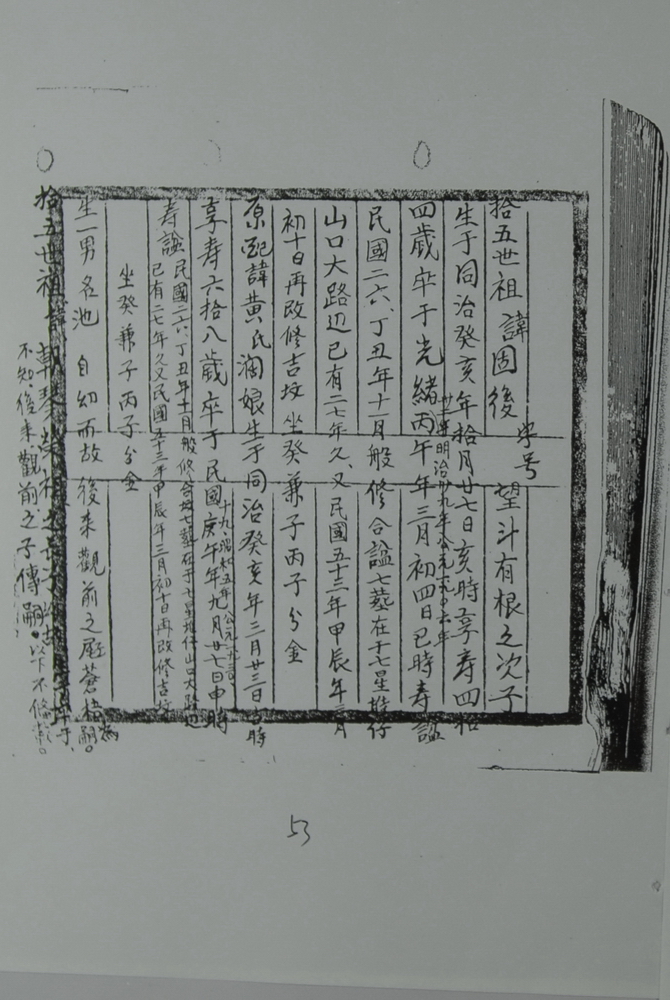 拾五世祖諱固後 字号 望斗有根之次子
生于同治癸亥年拾月廿七日亥時享寿四拾
四歲卒于光緒丙午年三月初四日巳時寿謚
廿二年明治卅九年公元一九〇六年
民國二六、丁丑年十一月般修合謚七墓在于七星堆仔
山口大路辺已有二七年久、又民國五十三年甲辰年三月
初十日再改修吉坟坐癸兼子丙子分金
原配諱黃氏潤娘生于同治癸亥年三月廿三日 時
享寿六拾八歲卒于民國庚午年九月廿七日申時
十九昭和五年公元一九三〇
寿謚民國二六、丁丑年十一月般修合坟七墓在于七星堆仔山口大路辺
已有二七年久又民國五十三年甲辰年三月初十日再改修吉坟
坐癸兼子丙子分金
生一男名池 自幼而故 後来觀前之 蒼 嗣。
拾五世祖諱朝琴
不知、後来觀前之子傳嗣。以下不修
53